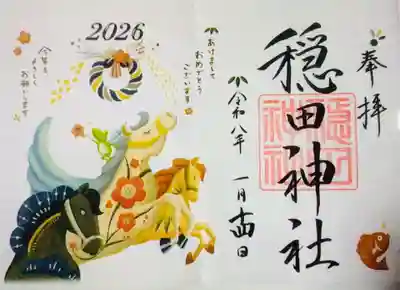 奉拝
穏田神社
令和八年 一月十四日
あけまして
おめでとう
ございます
2026
今年も
よろしく
お願いします